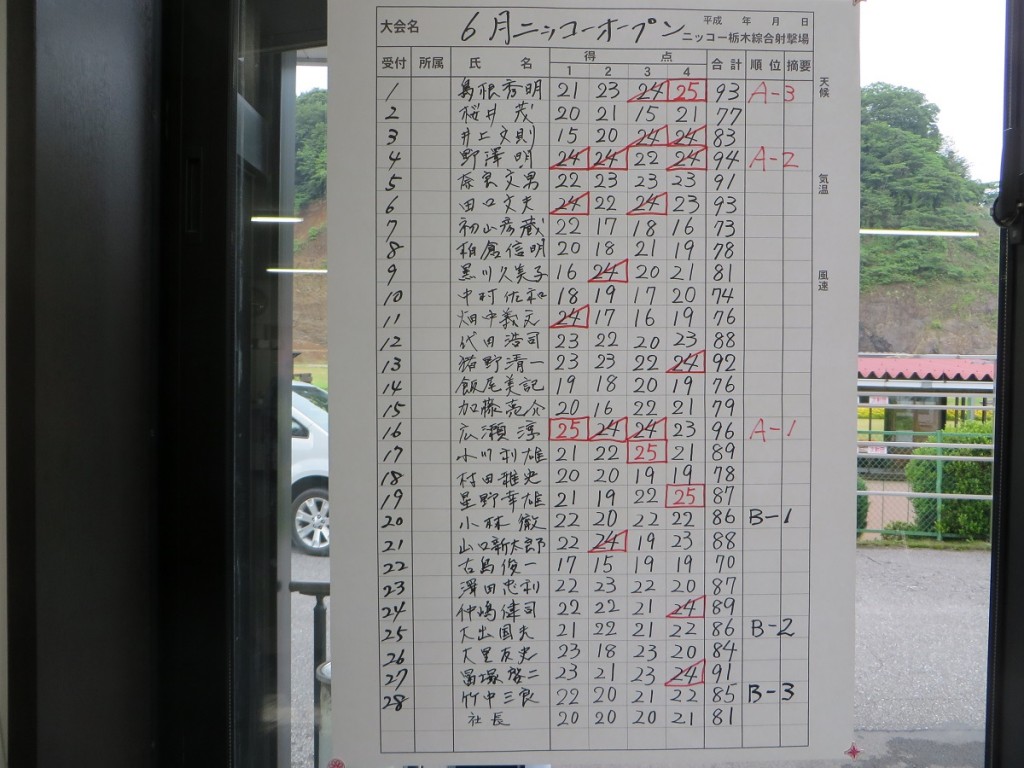 大会名 6月ニッコーオープン 平成 年 月 日
ニッコー栃木綜合射撃場
受付 所属 氏 名 得 点 合計 順位 摘要
1 2 3 4
1 島根秀明 21 23 24 25 93 A-3
2 桜井 茂 20 21 15 21 77
3 井上文則 15 20 24 24 83
4 野澤 明 24 24 22 24 94 A-2
5 奈良文男 22 23 23 23 91
6 田口文夫 24 22 24 23 93
7 初山彦蔵 22 17 18 16 73
8 柏倉信明 20 18 21 19 78
9 黒川久美子 16 24 20 21 81
10 中村佐和 18 19 17 20 74
11 畑中義元 24 17 16 19 76
12 代田浩司 23 22 20 23 88
13 猪野清一 23 23 22 24 92
14 飯尾美記 19 18 20 19 76
15 加藤亮介 20 16 22 21 79
16 広瀬 淳 25 24 24 23 96 A-1
17 小川利雄 21 22 25 21 89
18 村田雅史 20 20 19 19 78
19 星野幸雄 21 19 22 25 87
20 小林 徹 22 20 22 22 86 B-1
21 山口新太郎 22 24 19 23 88
22 古島俊一 17 15 19 19 70
23 澤田忠利 22 23 22 20 87
24 仲嶋健司 22 22 21 24 89
25 大出国夫 21 22 21 22 86 B-2
26 大里友史 23 18 23 20 84
27 冨塚啓二 23 21 23 24 91
28 竹中三良 22 20 21 22 85 B-3
社長 20 20 20 21 81
天候
気温
風速